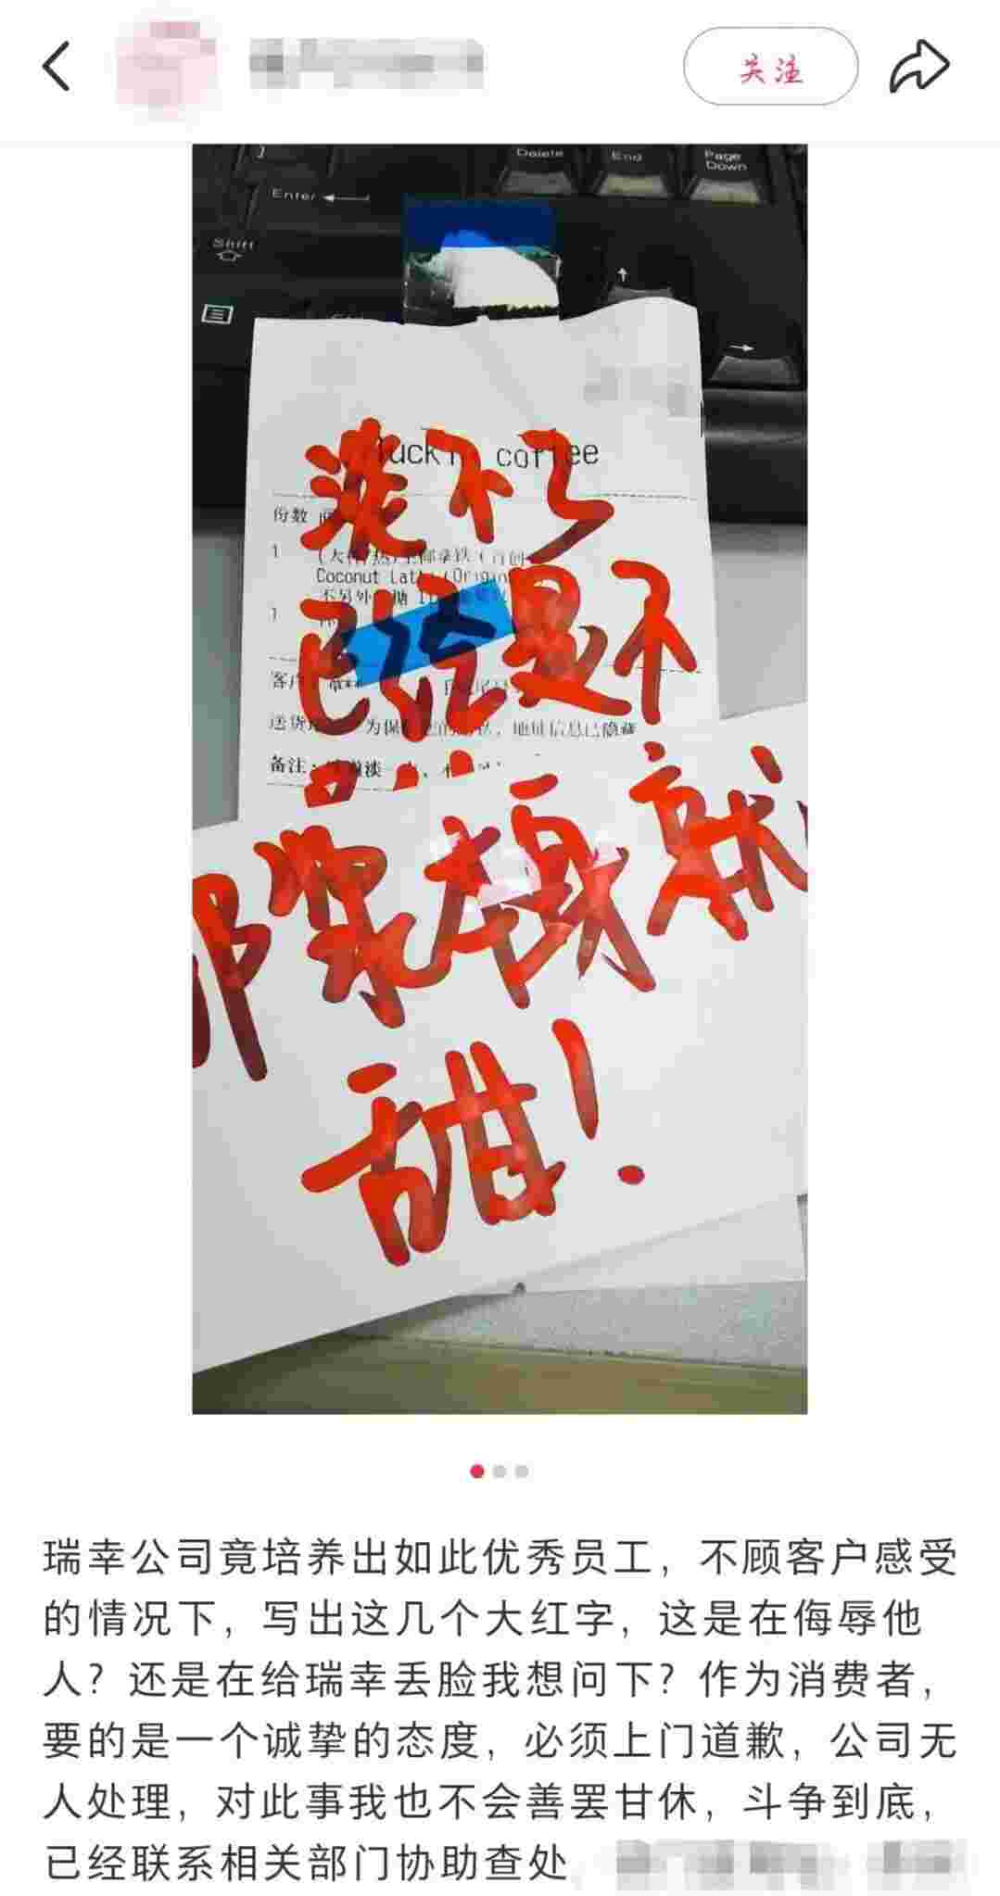 关注
Delete
End
Page Down
Enter
Shift
luckin coffee
份数
1
Coconut Latte (Origin
1
为保
地址信息已隐藏
备注:
淡不了
已经是不
那浆本身就
甜!
瑞幸公司竟培养出如此优秀员工，不顾客户感受
的情况下，写出这几个大红字，这是在侮辱他
人？还是在给瑞幸丢脸我想问下？作为消费者，
要的是一个诚挚的态度，必须上门道歉，公司无
人处理，对此事我也不会善罢甘休，斗争到底，
已经联系相关部门协助查处，